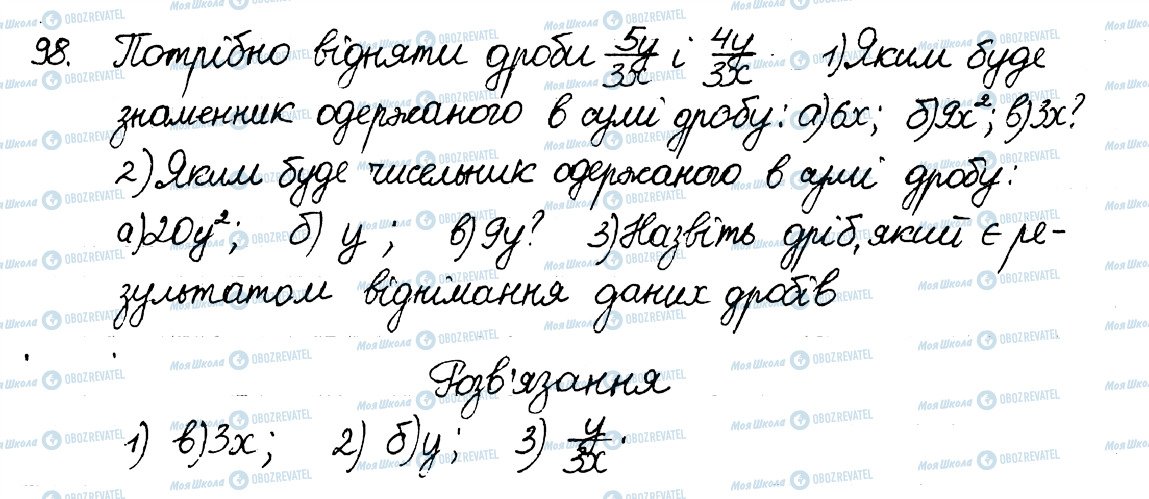 98. Потрібно відняти дроби 5y/3x і 4y/3x. 1) Яким буде
знаменник одержаного в сумі дробу: а) 6x; б) 9x²; в) 3x?
2) Яким буде чисельник одержаного в сумі дробу:
а) 20y²; б) y; в) 9y? 3) Назвіть дріб, який є ре-
зультатом віднімання даних дробів
Розв'язання
1) в) 3x; 2) б) y; 3) y/3x.